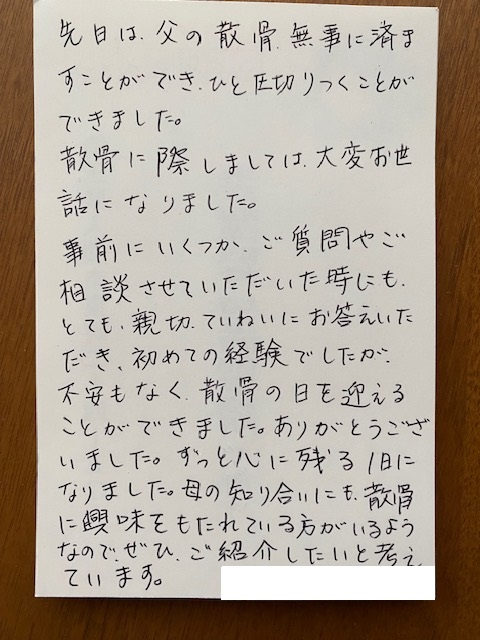 先日は、父の散骨、無事に済ま
すことができ、ひと区切りつくことが
できました。
散骨に際しましては、大変お世
話になりました。
事前にいくつか、ご質問やご
相談させていただいた時にも、
とても、親切、ていねいにお答えいた
だき、初めての経験でしたが、
不安もなく、散骨の日を迎える
ことができました。ありがとうござ
いました。ずっと心に残る1日に
なりました。母の知り合いにも、散骨
に興味をもたれている方がいるよう
なので、ぜひ、ご紹介したいと考え
ています。